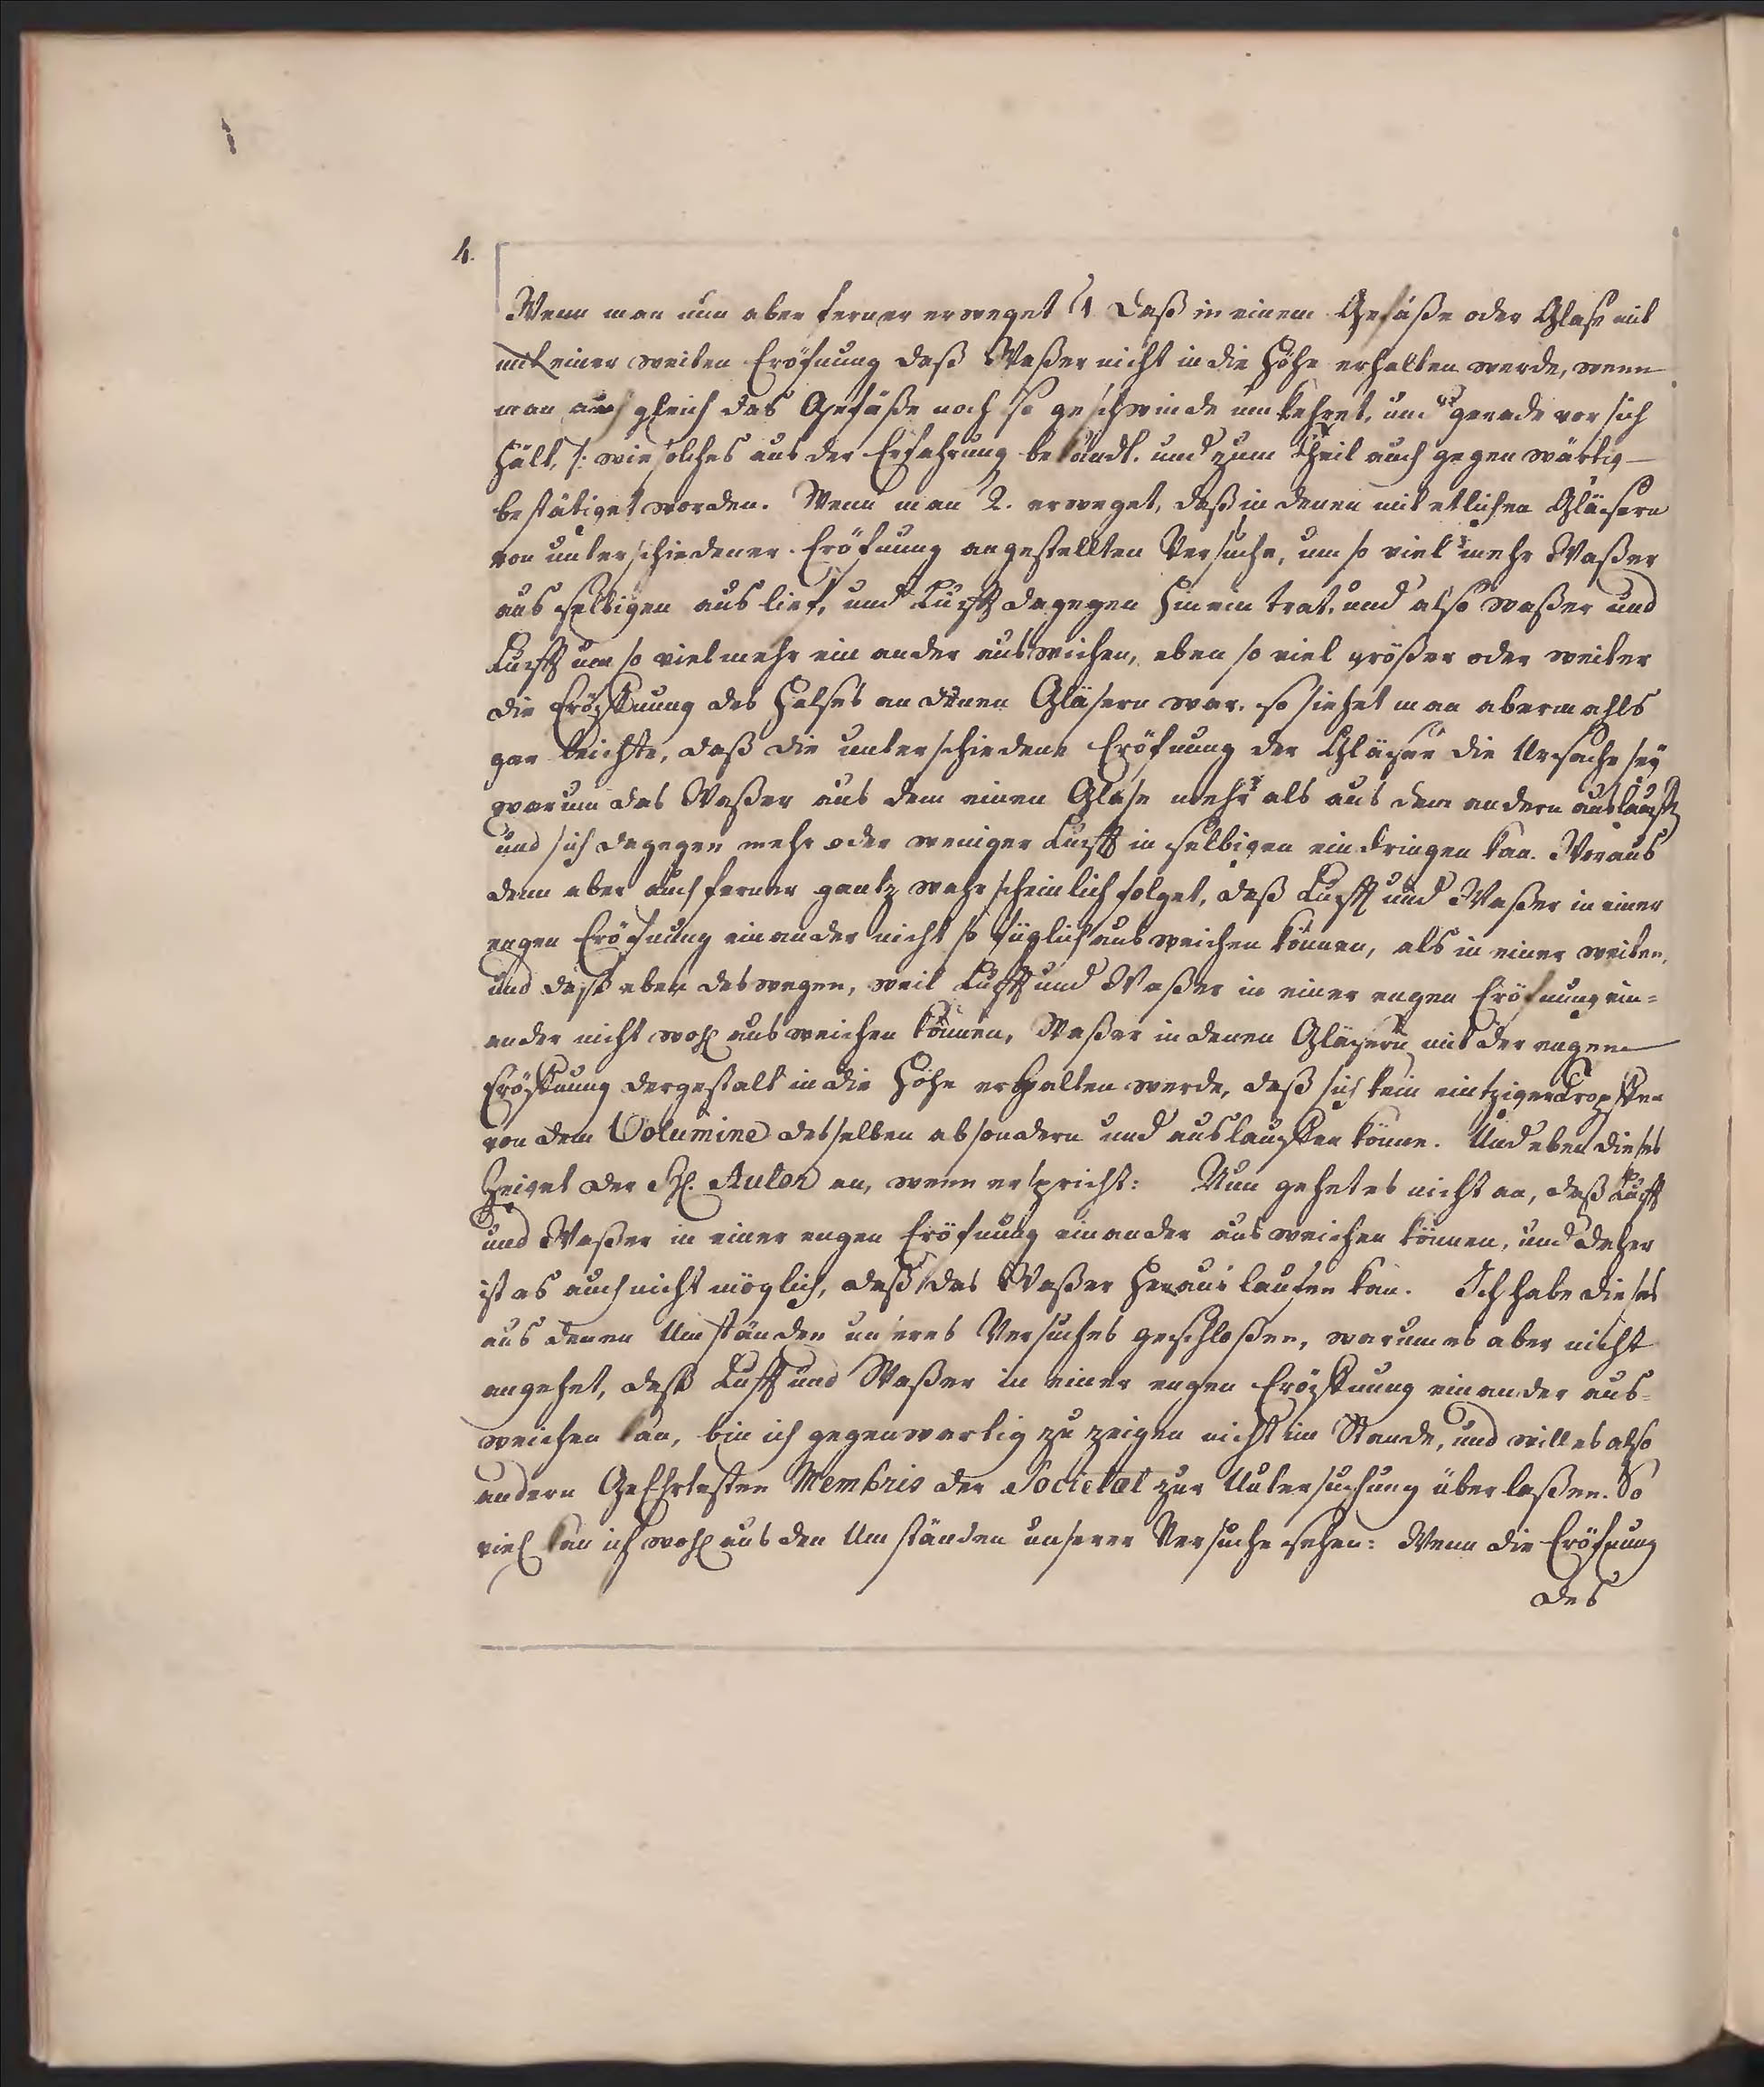 4.
Wenn man nun aber ferner erweget 1. daß in einem Gefäße oder Glase mit
mit einer weiten Eröfnung daß Waßer nicht in die Höhe erhalten werde, wenn
man auch gleich das Gefäße noch so geschwinde umkehret, und es gerade vor sich
hält, /: wie solches aus der Erfahrung bekandt. und zum Theil auch gegenwärtig
bestätiget worden. Wenn man 2. erweget, daß in denen mit etlichen Gläsern
von unterschiedener Eröfnung angestellten Versuche, um so viel mehr Waßer
aus selbigen auslief, und Lufft dagegen hinein trat, und also waßer und
Lufft um so viel mehr einander auswichen, eben so viel größer oder weiter
die Eröffnung des Halses an denen Gläsern war. so siehet man abermahls
gar leichte, daß die unterschiedene Eröfnung der Gläser die Ursache sey
warum das Waßer aus dem einen Glase mehr als aus dem andern ausläufft
und sich dagegen mehr oder weniger Lufft in selbigen eindringen kan. Woraus
denn aber auch ferner gantz wahrscheinlich folget, daß Lufft und Waßer in einer
engen Eröfnung einander nicht so füglich ausweichen können, als in einer weiten,
und daß eben deswegen, weil Lufft und Waßer in einer engen Eröfnung ein=
ander nicht wohl ausweichen können, Waßer in denen Gläsern mit der engen
Eröffnung dergestalt in die Höhe erhalten werde, daß sich kein eintziger Tropffen
von dem Volumine desselben absondern und auslauffen könne. Und eben dieses
Zeiget der H. Autor an, wenn er spricht: Nun gehet es nicht an, daß Lufft
und Waßer in einer engen Eröfnung einander ausweichen können, und daher
ist es auch nicht möglich, daß das Waßer heraus laufen kan. Ich habe dieses
aus denen Umständen unseres Versuches geschloßen, warum es aber nicht
angehet, daß Lufft und Waßer in einer engen Eröffnung einander aus=
weichen kan, bin ich gegenwartig zu zeigen nicht im Stande, und will es also
andern GeEhrtesten Membris der Societæt zur Untersuchung überlaßen. So
viel kan ich wohl aus den Umständen unserer Versuche sehen: Wenn die Eröfnung
des